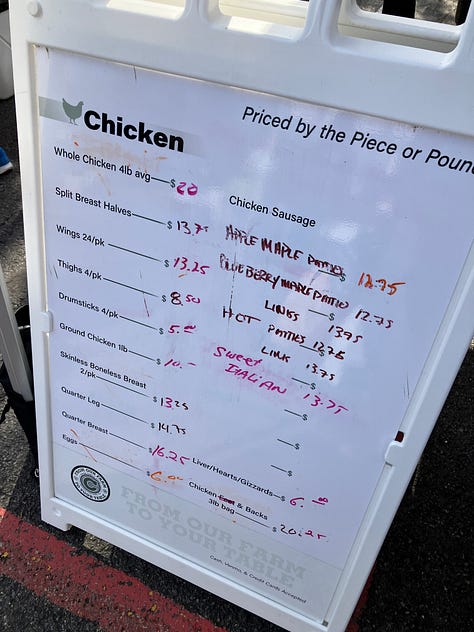 Chicken
Priced by the Piece or Poun
Whole Chicken 4lb avg—$20
Split Breast Halves—$13.75
Wings 24/pk—$13.25
Thighs 4/pk—$8.50
Drumsticks 4/pk—$5.00
Ground Chicken 1lb—$10.-
Skinless Boneless Breast
2/pk—$13.25
Quarter Leg—$14.75
Quarter Breast—$16.25
Eggs—$6.00
Chicken Sausage
APPLE MAPLE PATTIES—$12.75
BLUEBERRY MAPLE PATTIES 12.75
LINKS—$13.75
HOT PATTIES—$12.75
LINK 13.75
—$
Sweet
ITALIAN 13.75
—$
—$
—$
Liver/Hearts/Gizzards—$6.00
Chicken & Backs
3lb bag—$20.25
OUR FARM
YOUR TABLE
FROM OUR FARM
TO YOUR TABLE
Cash, Venmo, & Credit Cards Accepted